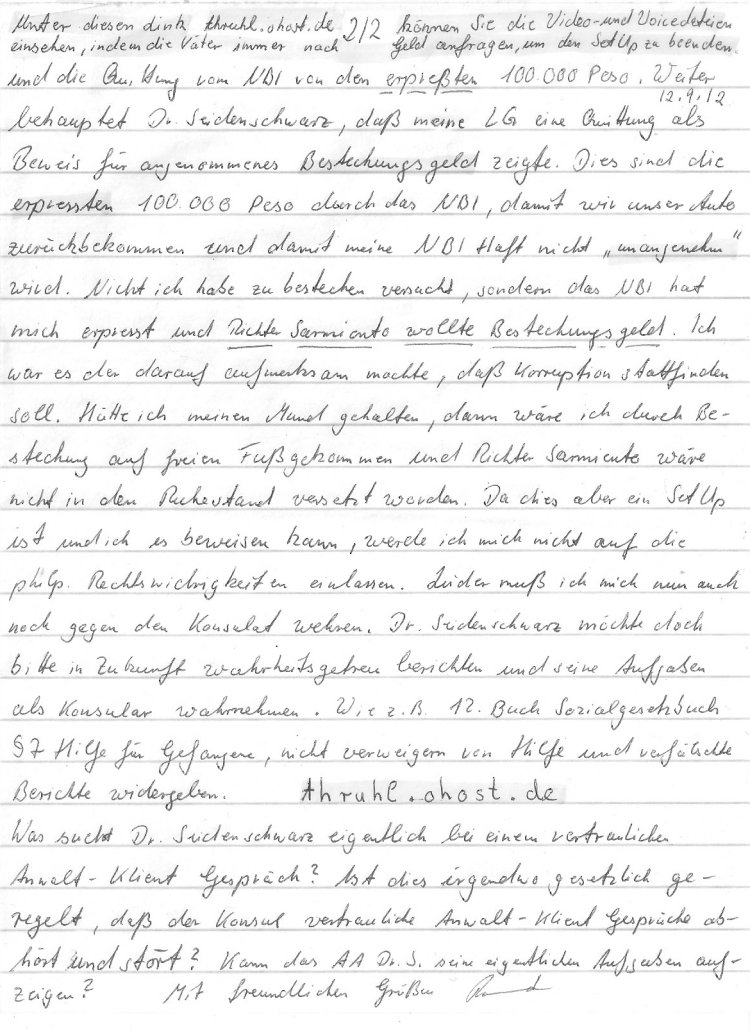 Unter diesen Link thruhl.ohost.de 2/2 können Sie die Video- und Voicedateien
einsehen, indem die Väter immer nach Geld anfragen, um den SetUp zu beenden.
und die Quittung vom NBI von den erpreßten 100.000 Peso. Weiter
12.9.12
behauptet Dr. Seidenschwarz, daß meine LG eine Quittung als
Beweis für angenommenes Bestechungsgeld zeigte. Dies sind die
erpressten 100.000 Peso durch das NBI, damit wir unser Auto
zurückbekommen und damit meine NBI Haft nicht „unangenehm"
wird. Nicht ich habe zu bestechen versucht, sondern das NBI hat
mich erpresst und Richter Sarmiento wollte Bestechungsgeld. Ich
war es der darauf aufmerksam machte, daß Korruption stattfinden
soll. Hätte ich meinen Mund gehalten, dann wäre ich durch Be-
stechung auf freien Fuß gekommen und Richter Sarmiento wäre
nicht in den Ruhestand versetzt worden. Da dies aber ein SetUp
ist und ich es beweisen kann, werde ich mich nicht auf die
philp. Rechtswidrigkeiten einlassen. Leider muß ich mich nun auch
noch gegen den Konsulat wehren. Dr. Seidenschwarz möchte doch
bitte in Zukunft wahrheitsgetreu berichten und seine Aufgaben
als Konsular wahrnehmen. Wie z.B. 12. Buch Sozialgesetzbuch
§7 Hilfe für Gefangene, nicht verweigern von Hilfe und verfälschte
Berichte widergeben. thruhl.ohost.de
Was sucht Dr. Seidenschwarz eigentlich bei einem vertraulichen
Anwalt-Klient Gespräch? Ist dies irgendwo gesetzlich ge-
regelt, daß der Konsul vertrauliche Anwalt-Klient Gespräche ab-
hört und stört? Kann das AA Dr. S. seine eigentlichen Aufgaben auf-
zeigen? Mit freundlichen Grüßen